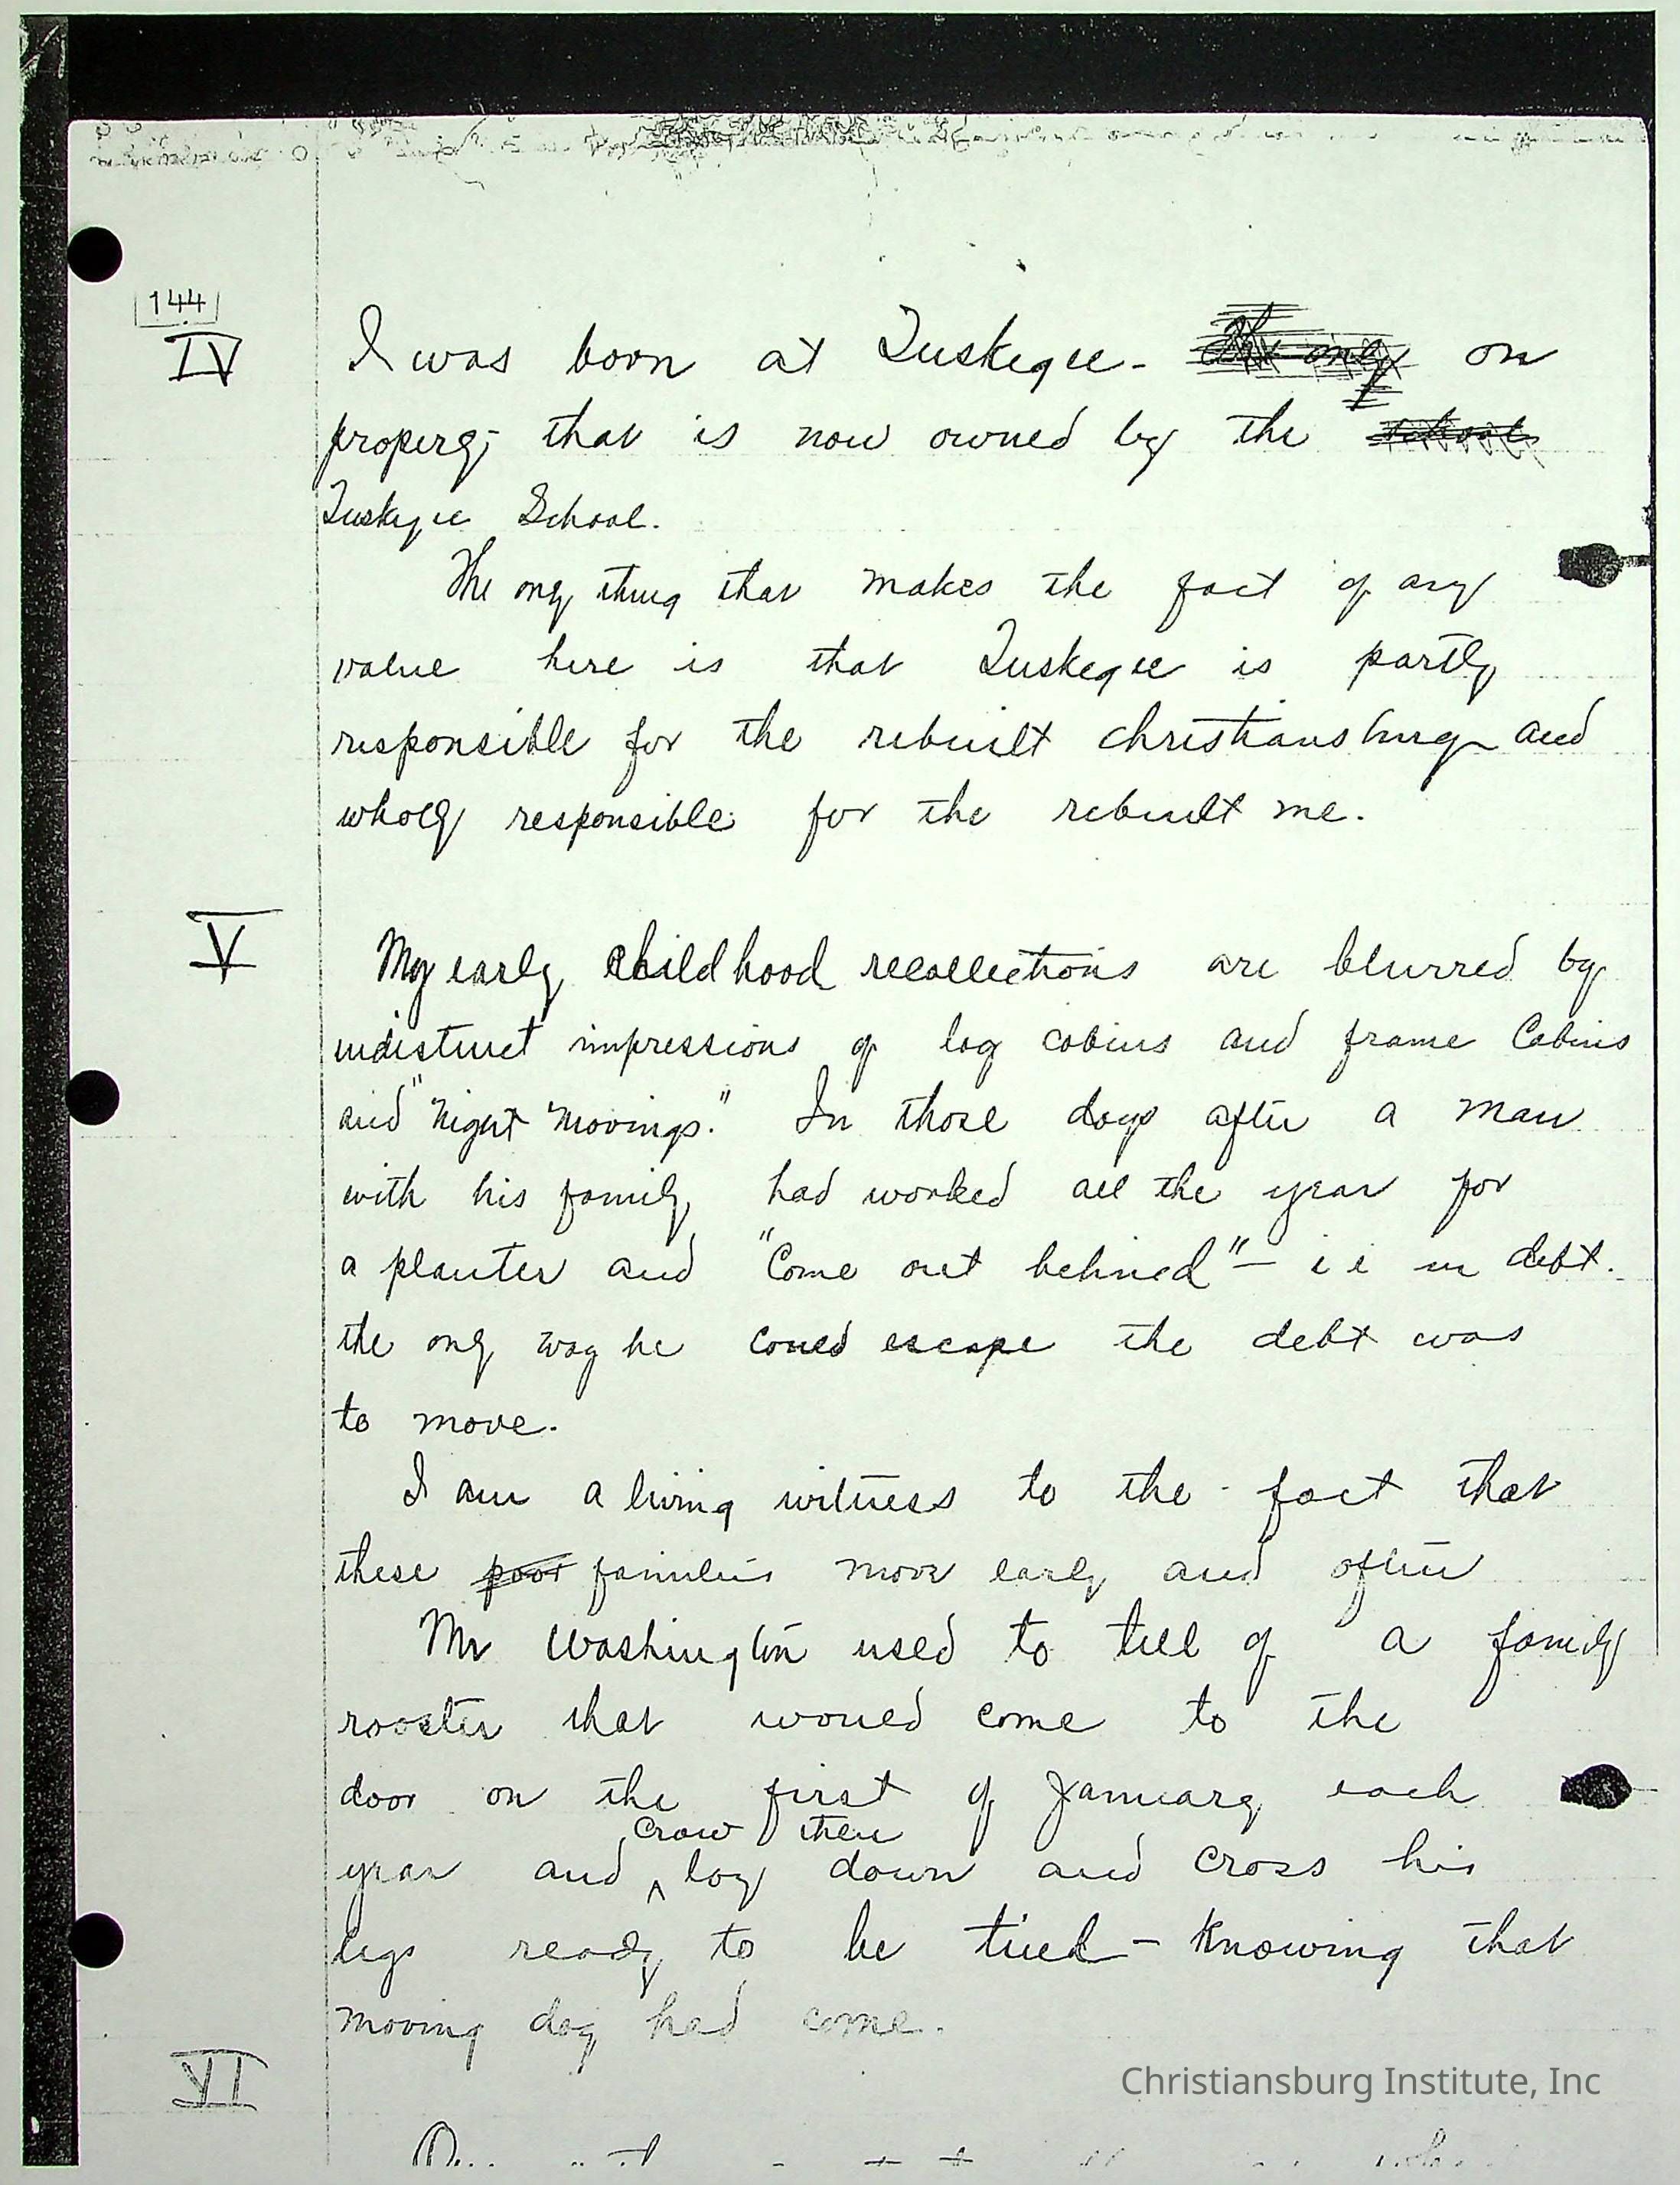 144
IV
I was born at Tuskegee - on
property that is now owned by the schools
Tuskegee School.
The only thing that makes the fact of any
value here is that Tuskegee is partly
responsible for the rebuilt christiansburg and
wholly responsible for the rebuilt me.
V
My early childhood recollections are blurred by
indistinct impressions of log cabins and frame Cabins
and "Night Movings." In those days after a man
with his family had worked all the year for
a planter and "Come out behind" - i e in debt.
the only way he could escape the debt was
to move.
I am a living witness to the fact that
these poor families move early and often
Mr Washington used to tell of a family
rooster that would come to the
door on the first of January each
crow then
year and ^ lay down and cross his
legs ready to be tied - Knowing that
moving day had come.
VI
Christiansburg Institute, Inc